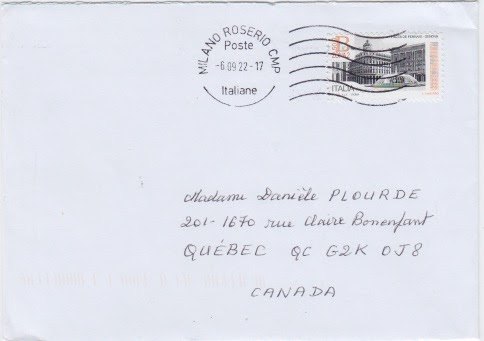 MILANO ROSERIO CMP
Poste
-6.09.22-17
Italiane
B
ITALIA
Madame Danièle PLOURDE
201-1670 rue Claire Bonenfant
QUÉBEC QC G2K 0J8
CANADA